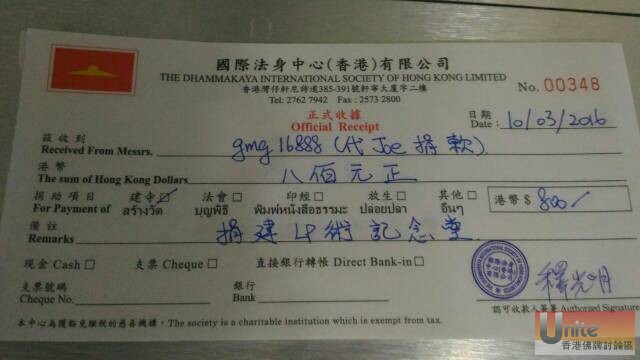 國際法身中心(香港)有限公司
THE DHAMMAKAYA INTERNATIONAL SOCIETY OF HONG KONG LIMITED
香港灣仔軒尼詩道385-391號軒寧大廈字二樓
Tel: 2762 7942 Fax : 2573 2800
No. 00348
正式收據
Official Receipt
日期
Date : 10/03/2016
茲收到
Received From Messrs. gmg 16888 (代 Joe 捐款)
港幣
The sum of Hong Kong Dollars 八佰元正
捐助項目 建寺☑ 法會☐ 印經☐ 放生☐ 其他☐
For Payment of สร้างวัด บุญพิธี พิมพ์หนังสือธรรมะ ปล่อยปลา อื่นๆ
港幣 $ 800/
備註
Remarks 捐建 4P 術記念堂
現金 Cash ☐ 支票 Cheque ☐ 直接銀行轉帳 Direct Bank-in ☐
支票號碼
Cheque No.
銀行
Bank
國際法身中心(香港)有限公司
釋光明
認可收款人簽署 Authorized Signature
本中心為獲豁免繳稅的慈善機構。 The society is a charitable institution which is exempt from tax.
Unite
香港佛牌討論區